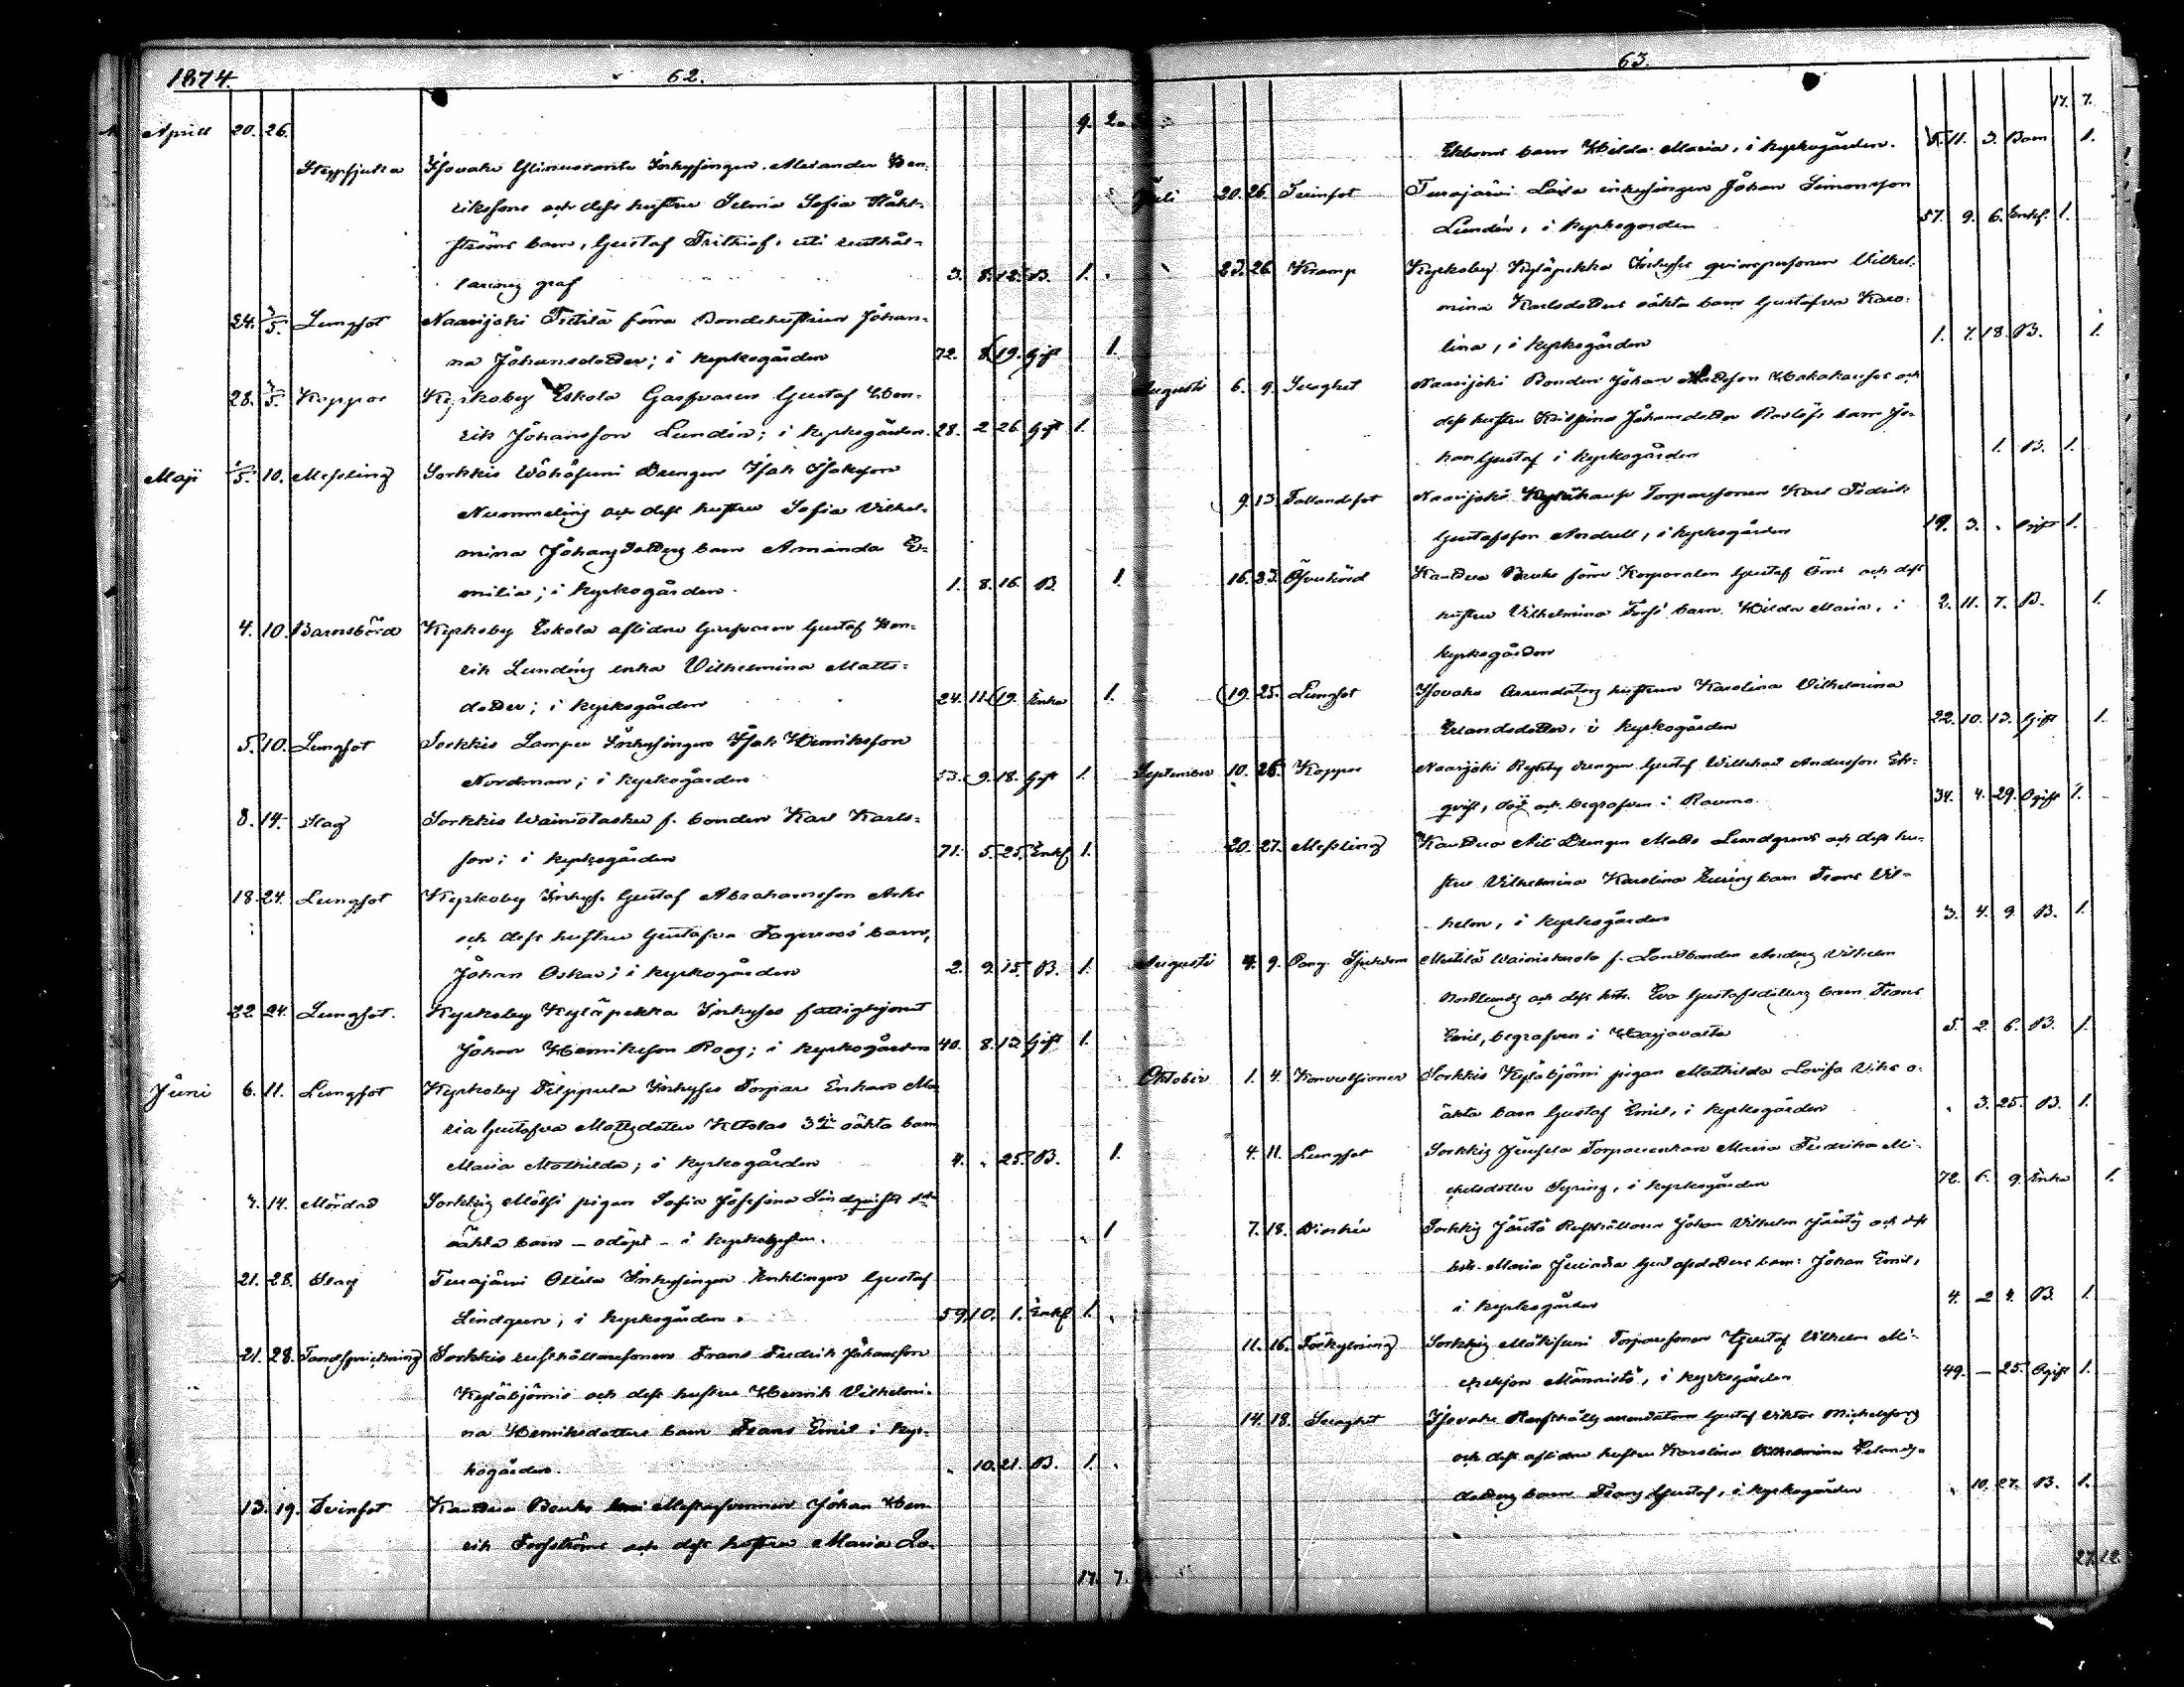 1874. 62.
9. 2.
April 20. 26.
Strypsjuka Isovahe Inhysingen Alexander Hen-
rikssons och dess hustru Selma Sofia
ströms barn, Gustaf Frithiof, uti
graf 3. 8. 12. B. 1.
24. 3/5. Lungsot Naarijoki Tittilä förra Bondehustrun Johan-
na Johansdotter; i kyrkogården 72. 8. 19. Gift 1.
28. 3/5. Koppor Kyrkoby Eskola Garfvaren Gustaf Hen-
rik Johansson Lundén; i kyrkogården. 28. 2. 26. Gift 1.
Maji 2/5. 10. Messling Sorkkis Drengen Isak Isaksson
Nummeling och dess hustru Sofia Vilhel-
mina Johansdotters barn Amanda E-
milia; i kyrkogården. 1. 8. 16. B. 1.
4. 10. Barnsbörd Kyrkoby Eskola aflidne Garfvaren Gustaf Hen-
rik Lundéns enka Vilhelmina Matts-
dotter; i kyrkogården 24. 11. 19. Enka 1.
5. 10. Lungsot Sorkkis Lamper Inhysingen Isak Henriksson
Nordman; i kyrkogården 53. 9. 18. Gift 1.
8. 14. Slag Sorkkis f. bonden Karl Karls-
son; i kyrkogården 71. 5. 25. Enkl. 1.
18. 24. Lungsot Kyrkoby Inhys. Gustaf Abrahamsson
och dess hustru Gustafva Fagerroos' barn,
Johan Oskar; i kyrkogården 2. 9. 15. B. 1.
22. 24. Lungsot. Kyrkoby Kyläpekka Inhyses fattighjonet
Johan Henriksson Roos; i kyrkogården 40. 8. 13. Gift 1.
Juni 6. 11. Lungsot Kyrkoby Filppula Inhyses Torpare Enkan Ma-
ria Gustafva Mattsdotter Ketolas 3dje oäkta barn
Maria Mathilda; i kyrkogården 4. „ 25. B. 1.
7. 14. Mördad Sorkkis pigan Sofia Josefina Lindqvists 1sta
oäkta barn – odöpt – i kyrkogården. „ 1
21. 28. Slag Turajärvi Ollila Inhysingen Enklingen Gustaf
Lindgren; i kyrkogården. 59. 10. 1. Enkl. 1.
21. 28. Tandsprickning Sorkkis rusthållaresonen Frans Fredrik Johansson
Kyläbjörnis och dess hustru Henrik Vilhelmi-
na Henriksdotters barn Frans Emil i kyr-
kogården. „ 10. 21. B. 1.
13. 19. Tvinsot Kauttua Bruks Johan Hen-
rik Forsströms och dess hustru Maria Lo-
17. 7.
63.
17. 7.
Ekboms barn Hilda Maria, i kyrkogården. 5. 11. 3. Barn 1.
Juli 20. 26. Tvinsot Turajärvi inhysingen Johan Simonsson
Lundén, i kyrkogården 57. 9. 6. Enkl. 1.
23. 26. Kramp Kyrkoby Kyläpekka Inhyses qvinspersonen Vilhel-
mina Karlsdotters oäkta barn Gustafva Karo-
lina, i kyrkogården 1. 7. 18. B. 1.
Augusti 6. 9. Svaghet Naarijoki Bonden Johan Mattsson och
dess hustru Johansdotter barn Jo-
han Gustaf i kyrkogården 1. B. 1.
9. 13. Fallandsot Naarijoki Torparesonen Karl Fredrik
Gustafsson Andrell, i kyrkogården 19. 3. „ Ogift 1.
16. 23. Kauttua Bruks förre Korporalen Gustaf och dess
hustru Vilhelmina barn Hilda Maria, i 2. 11. 7. B. 1.
kyrkogården
19. 25. Lungsot Isovahe Arrendators hustrun Karolina Vilhelmina
Erlandsdotter, i kyrkogården 22. 10. 13. Gift 1.
September 10. 26. Koppor Naarijoki drengen Gustaf Andersson Ek-
qvist, död och begrafven i Raumo. 34. 4. 29. Ogift 1.
20. 27. Messling Kauttua Drengen Matts Lundgrens och dess hu-
stru Vilhelmina Karolina barn Frans Vil-
helm, i kyrkogården 3. 4. 9. B. 1.
Augusti 4. 9. Sjukdom f. Landbonden Anders Vilhelm
Nordlunds och dess hstr. Eva Gustafsdotters barn Frans
Emil, begrafven i Harjavalta 5. 2. 6. B. 1.
Oktober 1. 4. Konvulsioner Sorkkis Kyläbjörni pigan Mathilda Lovisa o-
äkta barn Gustaf Emil, i kyrkogården „ 3. 25. B. 1.
4. 11. Lungsot Sorkkis Torpareenkan Maria Fredrika Mi-
chelsdotter, i kyrkogården 72. 6. 9. Enka 1.
7. 18. Sorkkis Rusthållaren Johan Vilhelm och dess
hstr. Maria Gustafsdotters barn Johan Emil,
i kyrkogården 4. 2 4. B. 1.
11. 16. Förkylning Sorkkis Torparesonen Gustaf Vilhelm Mi-
chelsson Männistö, i kyrkogården 49. – 25. Ogift 1.
14. 18. Svaghet Isovahe arrendatorn Gustaf Viktor Michelssons
och dess aflidne hustru Karolina Vilhelmina Erlands-
dotters barn Frans Gustaf, i kyrkogården „ 10. 27. B. 1.
27. 12.